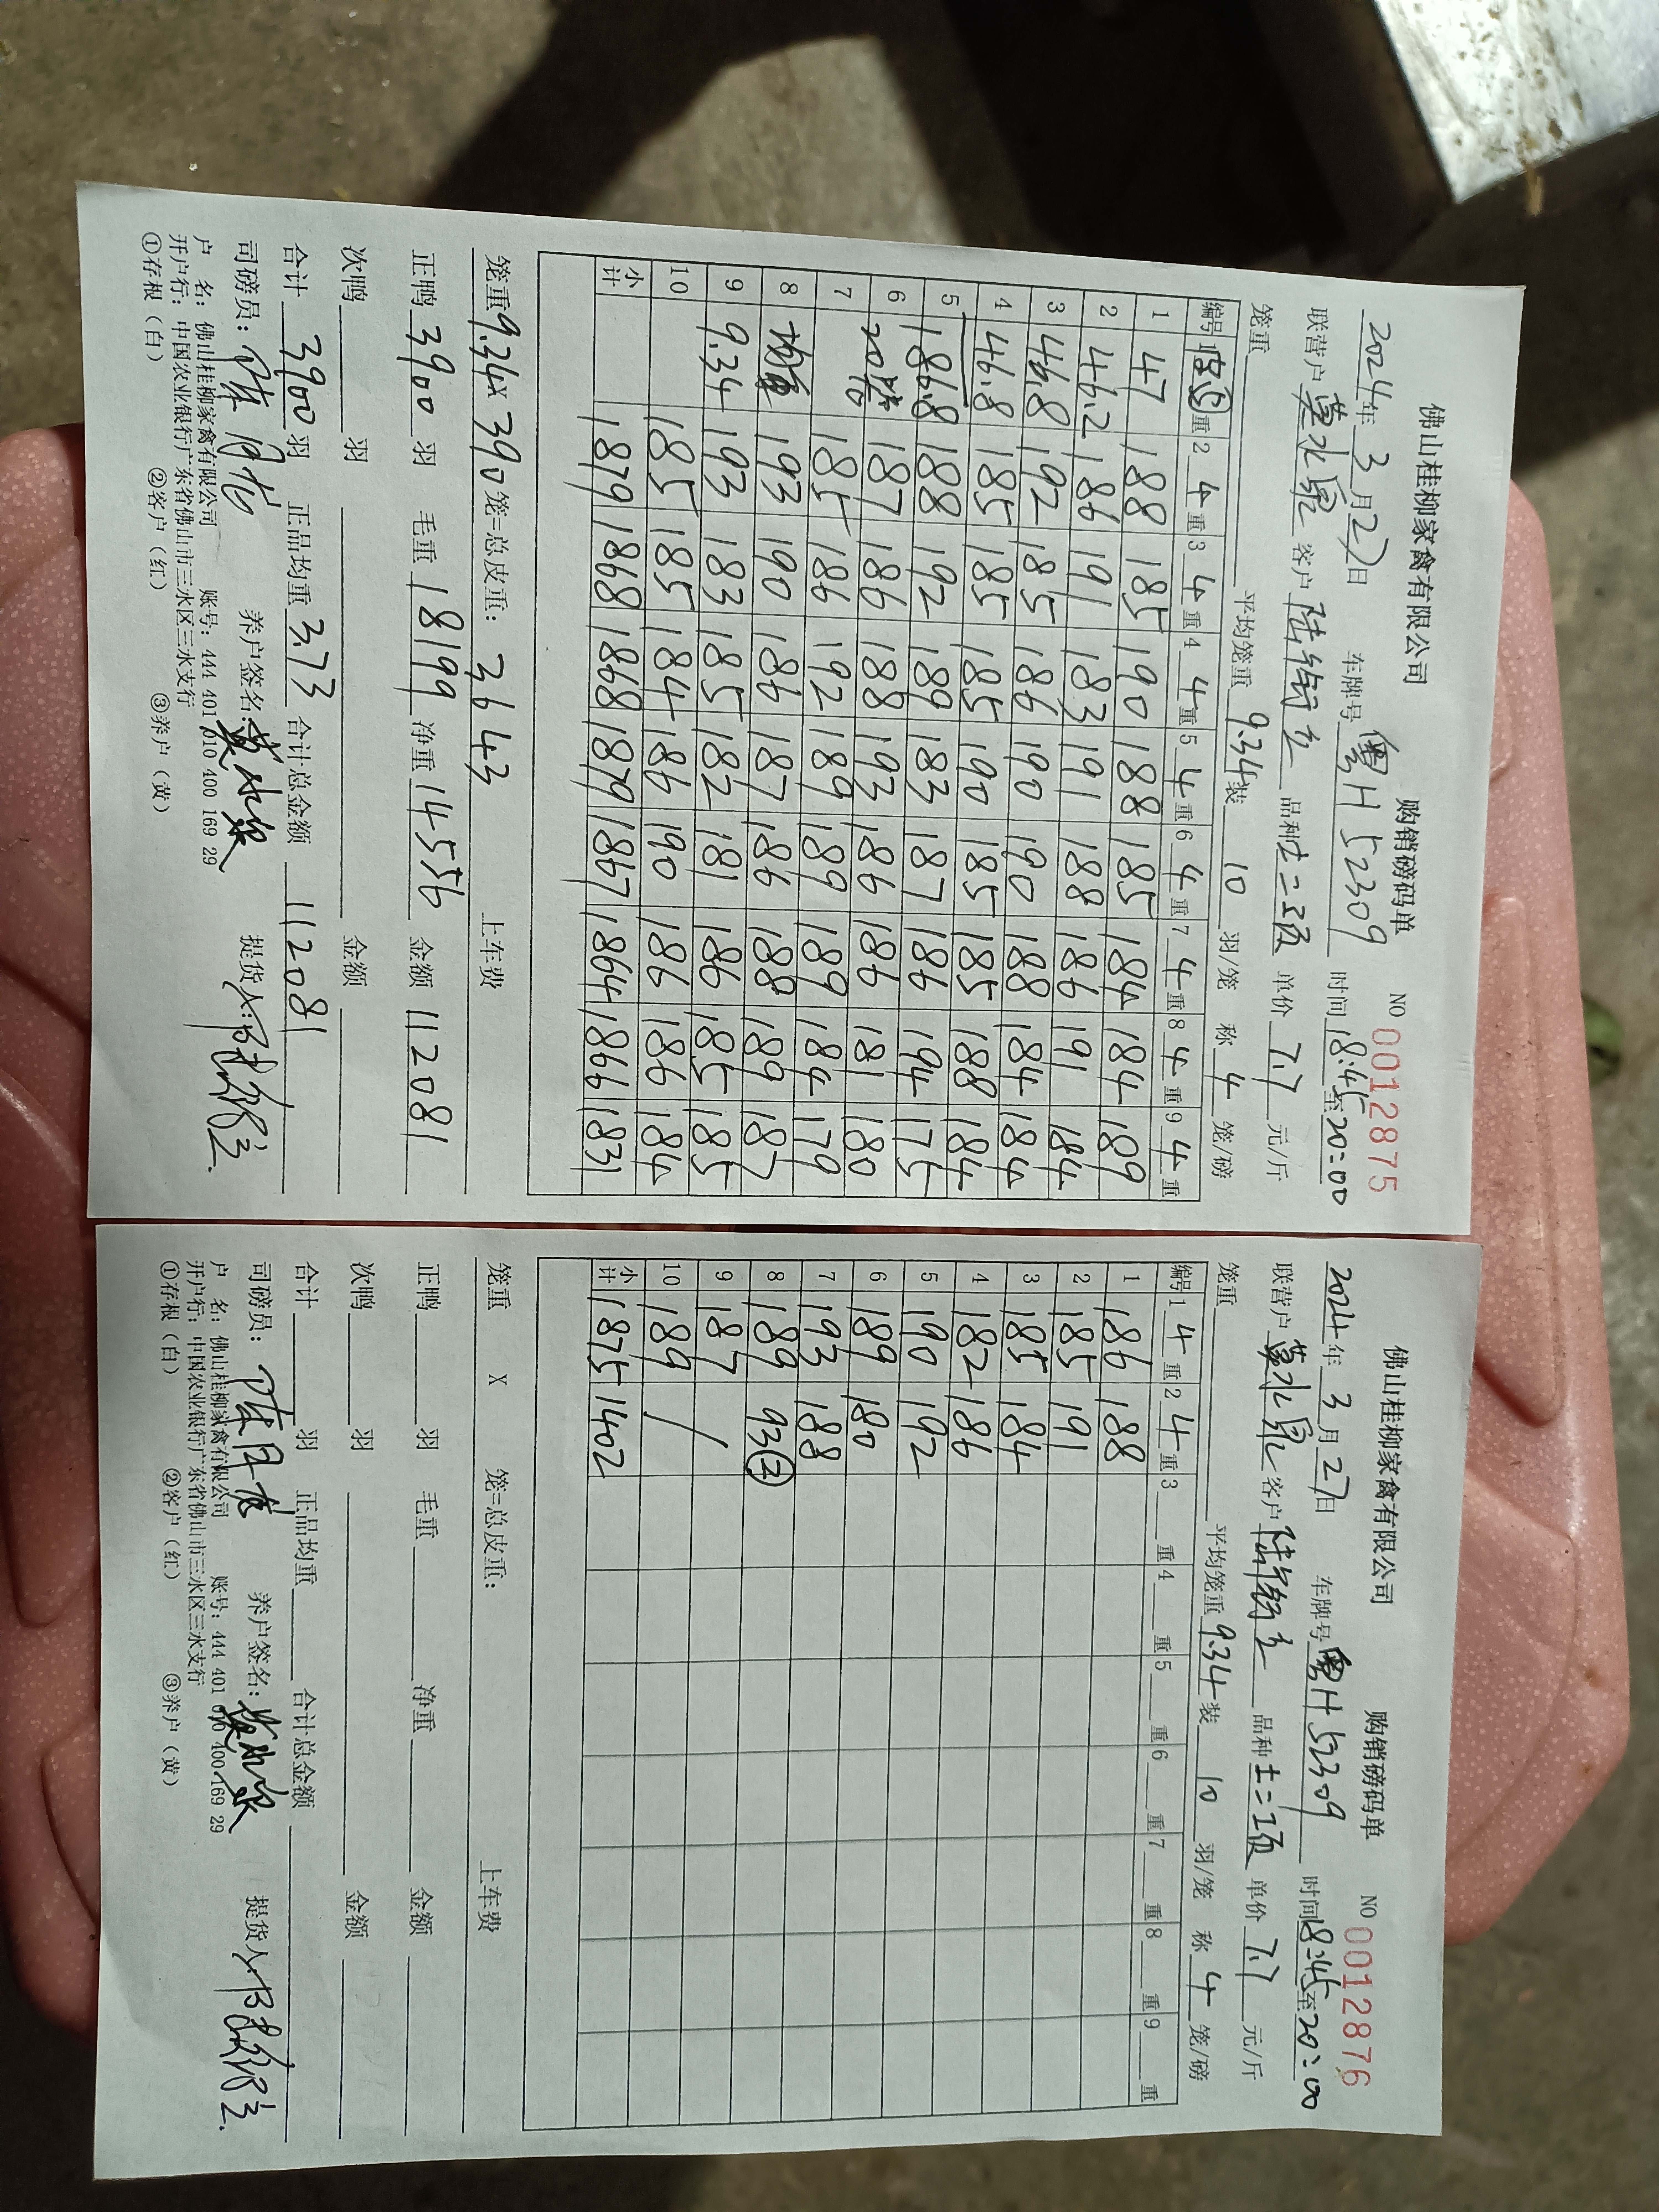 佛山桂柳家禽有限公司 购销磅码单 NO 0012875
2024年3月27日 车牌号 粤H52309 时间18:45至20:00
联营户 莫水泉 客户 品种 单价 7.7 元/斤
笼重 平均笼重 9.34 装 10 羽/笼 称 4 笼/磅
编号 1 皮 重 2 4 重 3 4 重 4 4 重 5 4 重 6 4 重 7 4 重 8 4 重 9 4 重
1 47 188 185 190 188 185 184 184 189
2 46.2 186 191 183 191 188 186 191 184
3 46.8 192 185 186 190 190 188 184 184
4 46.8 185 185 185 190 185 185 188 184
5 186.8 188 192 189 183 187 186 194 175
6 20笼 187 186 188 193 186 186 181 180
7 185 186 192 189 189 189 184 179
8 均重 193 190 186 187 186 188 189 187
9 9.34 193 183 185 182 181 186 185 185
10 185 185 184 186 190 186 186 184
小计 1879 1868 1868 1879 1867 1864 1866 1831
笼重 9.34 X 390 笼=总皮重: 3643 上车费
正鸭 3900 羽 毛重 18199 净重 14556 金额 112081
次鸭 羽 金额
合计 3900 羽 正品均重 3.73 合计总金额 112081
司磅员: 养户签名: 莫水泉 提货人:
户 名: 佛山桂柳家禽有限公司 账号: 444 401 010 400 169 29
开户行: 中国农业银行广东省佛山市三水区三水支行
①存根(白) ②客户(红) ③养户(黄)
佛山桂柳家禽有限公司 购销磅码单 NO 0012876
2024年3月27日 车牌号 粤H52309 时间18:45至20:00
联营户 莫水泉 客户 品种 单价 7.7 元/斤
笼重 平均笼重 9.34 装 10 羽/笼 称 4 笼/磅
编号 1 4 重 2 4 重 3 重 4 重 5 重 6 重 7 重 8 重 9 重
1 186 188
2 185 191
3 185 184
4 182 186
5 190 192
6 189 180
7 193 188
8 189 93②
9 187
10 189 /
小计 1875 1402
笼重 X 笼=总皮重: 上车费
正鸭 羽 毛重 净重 金额
次鸭 羽 金额
合计 羽 正品均重 合计总金额
司磅员: 养户签名: 莫水泉 提货人:
户 名: 佛山桂柳家禽有限公司 账号: 444 401 010 400 169 29
开户行: 中国农业银行广东省佛山市三水区三水支行
①存根(白) ②客户(红) ③养户(黄)